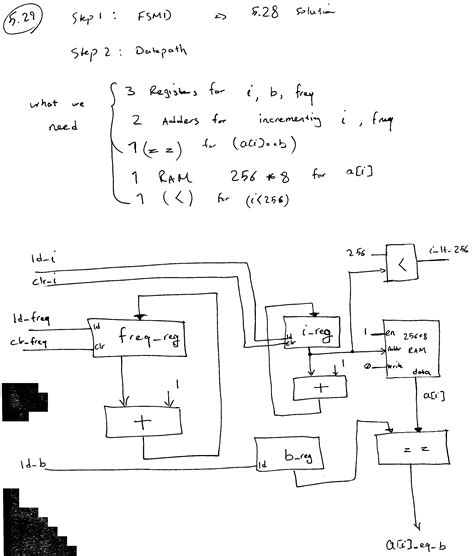 5.29 Step 1 : FSMD ⇔ 5.28 solution
Step 2 : Datapath
what we need
3 Registers for i, b, freq
2 Adders for incrementing i, freq
1 (= =) for (a[i]==b)
1 RAM 256 * 8 for a[i]
1 (<) for (i<256)
256
<
i_lt_256
ld_i
clr_i
ld_freq
clr_freq
ld
clr
freq_reg
ld
clr
i_reg
1 en
Addr
0 write
256*8
RAM
data
1
+
1
+
a[i]
ld_b
ld
b_reg
= =
a[i]_eq_b